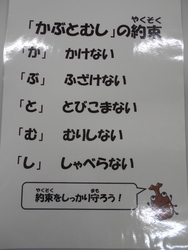 「かぶとむし」の約束
やくそく
「か」 かけない
「ぶ」 ふざけない
「と」 とびこまない
「む」 むりしない
「し」 しゃべらない
やくそく まも
約束をしっかり守ろう！